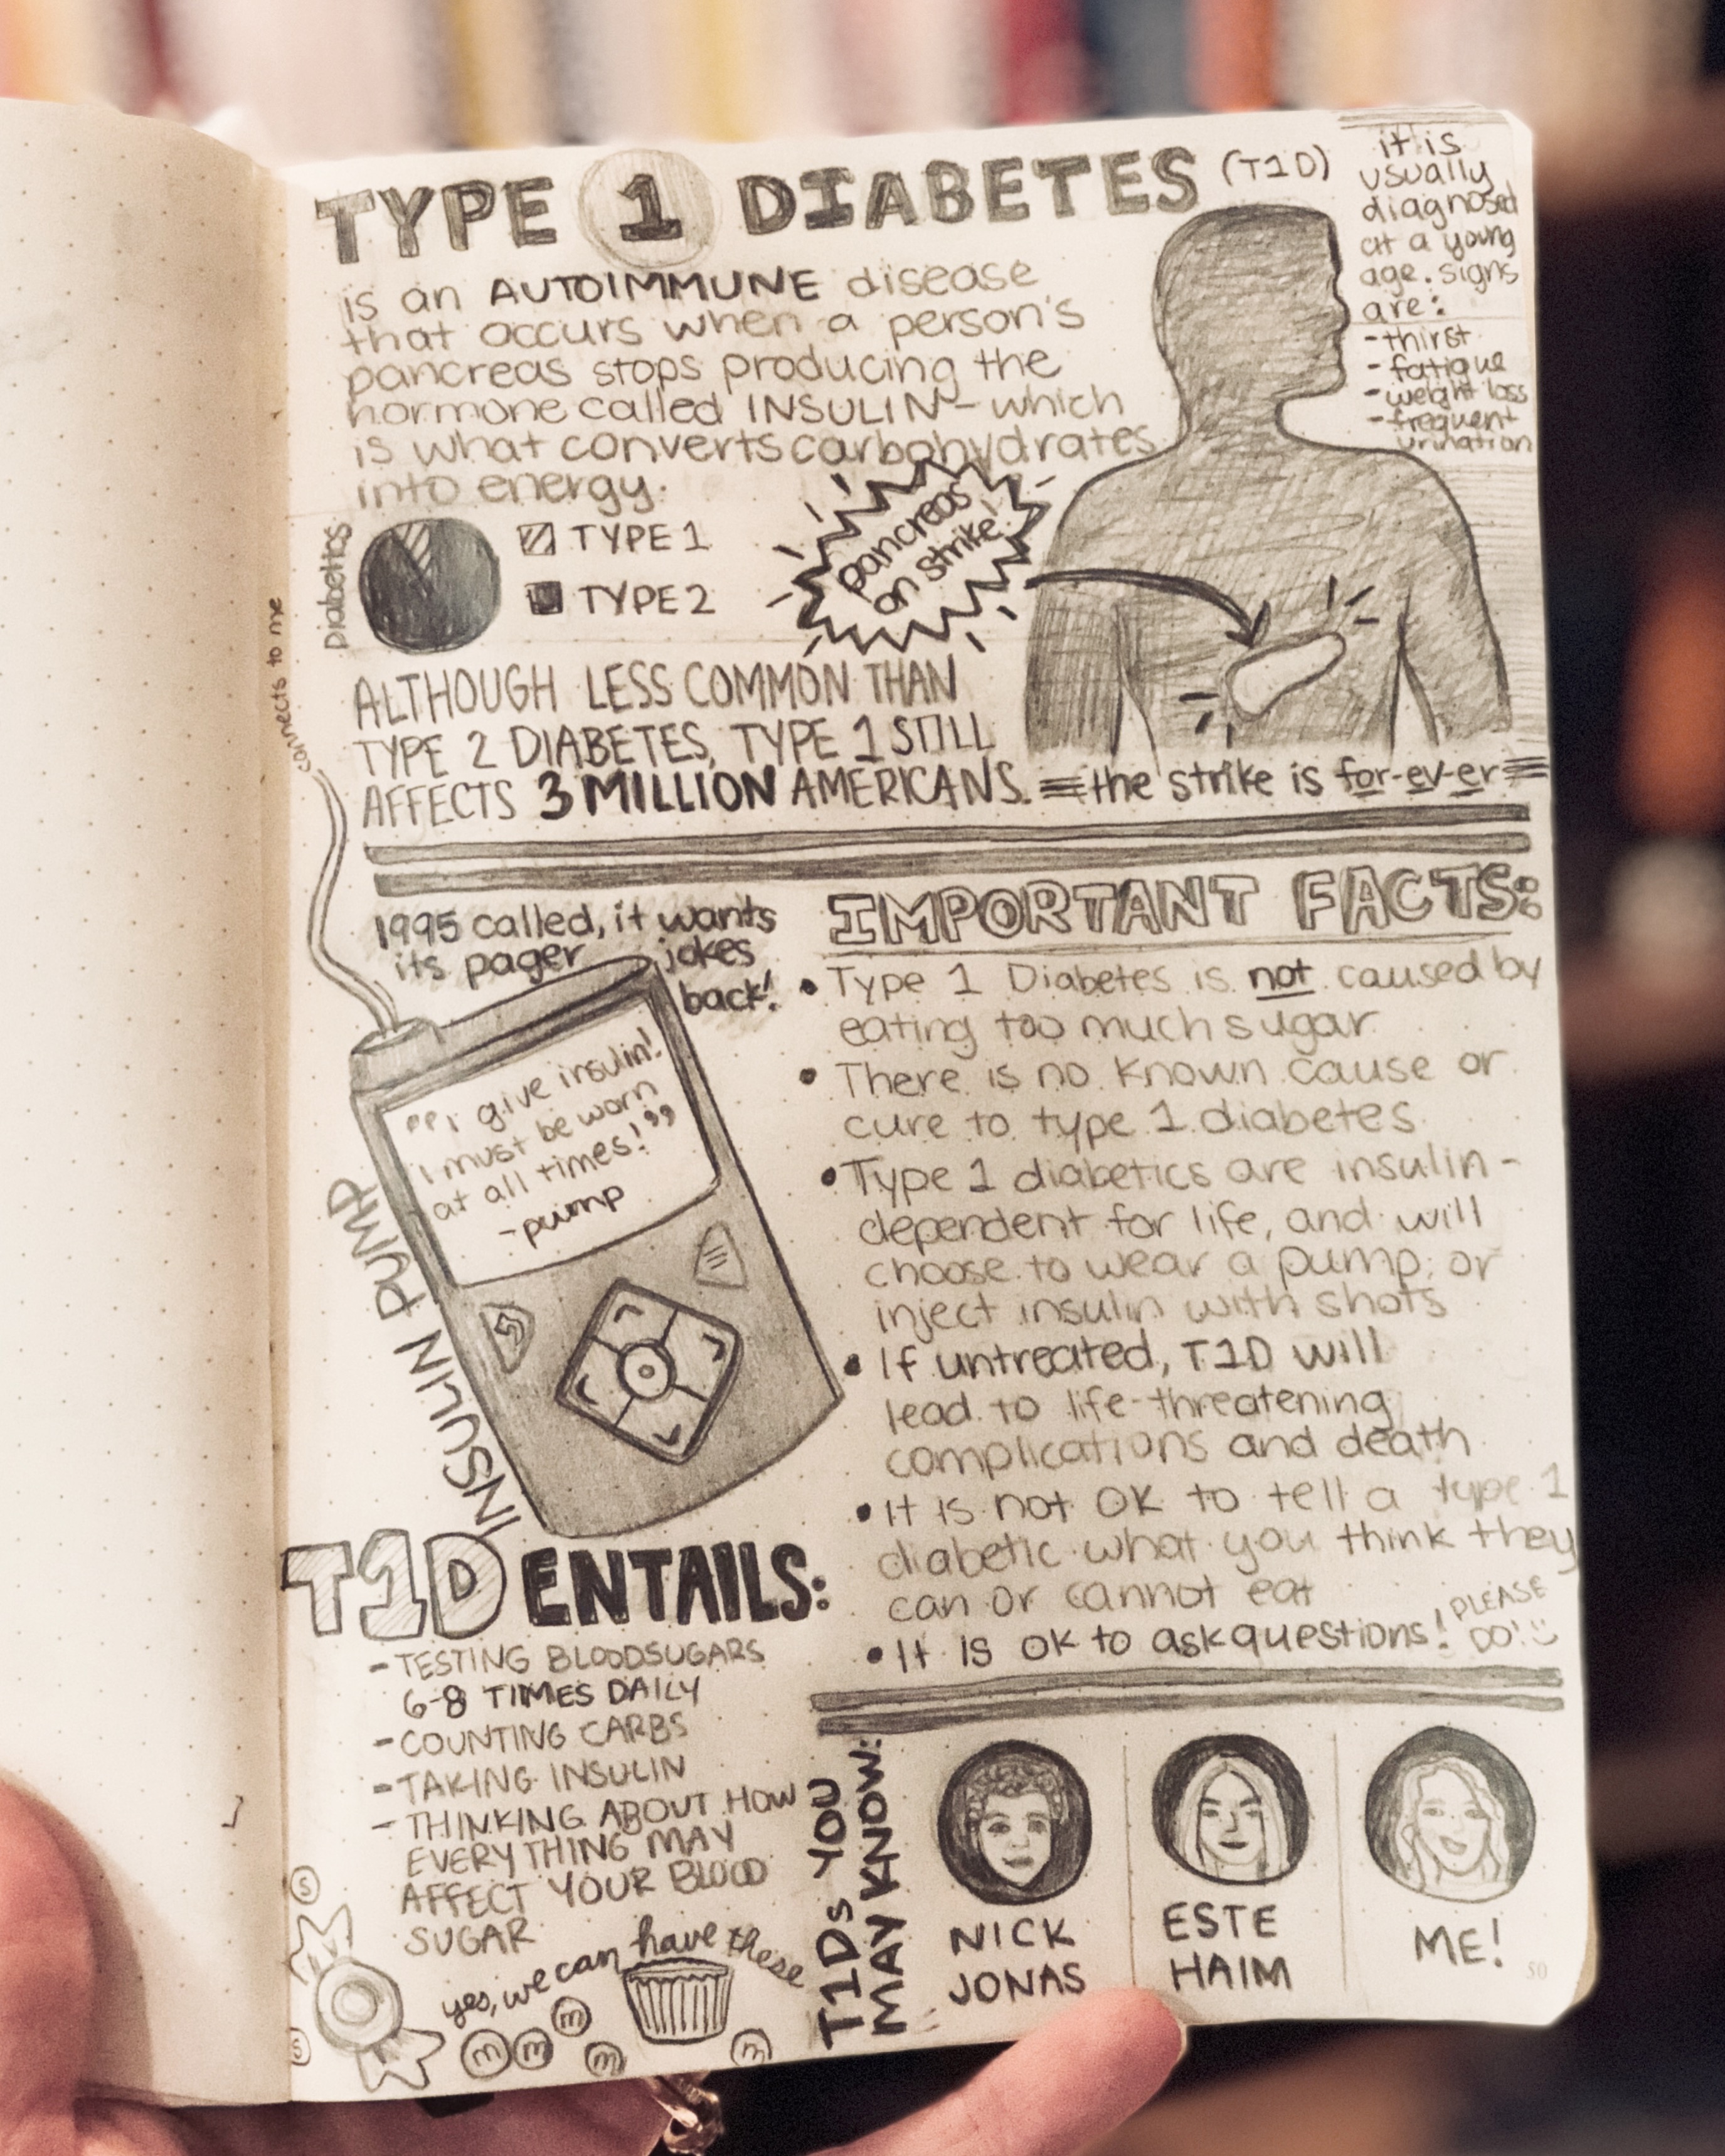 TYPE 1 DIABETES (T1D)
is an AUTOIMMUNE disease
that occurs when a person's
pancreas stops producing the
hormone called INSULIN - which
is what converts carbohydrates
into energy.
it is
usually
diagnosed
at a young
age. signs
are:
- thirst
- fatigue
- weight loss
- frequent
urination
Diabetics
TYPE 1
TYPE 2
pancreas
on strike!
ALTHOUGH LESS COMMON THAN
TYPE 2 DIABETES, TYPE 1 STILL
AFFECTS 3 MILLION AMERICANS.
the strike is for-ev-er
connects to me
1995 called, it wants
its pager jokes
back!
"I give insulin!
I must be worn
at all times!"
- pump
INSULIN PUMP
IMPORTANT FACTS:
• Type 1 Diabetes is not caused by
eating too much sugar
• There is no known cause or
cure to type 1 diabetes
• Type 1 diabetics are insulin-
dependent for life, and will
choose to wear a pump, or
inject insulin with shots
• If untreated, T1D will
lead to life-threatening
complications and death
• It is not OK to tell a type 1
diabetic what you think they
can or cannot eat
• It is OK to ask questions! PLEASE
DO!
T1D ENTAILS:
- TESTING BLOODSUGARS
6-8 TIMES DAILY
- COUNTING CARBS
- TAKING INSULIN
- THINKING ABOUT HOW
EVERYTHING MAY
AFFECT YOUR BLOOD
SUGAR
yes, we can have these
S
S
m
m
m
m
m
T1Ds YOU
MAY KNOW:
NICK
JONAS
ESTE
HAIM
ME!
50